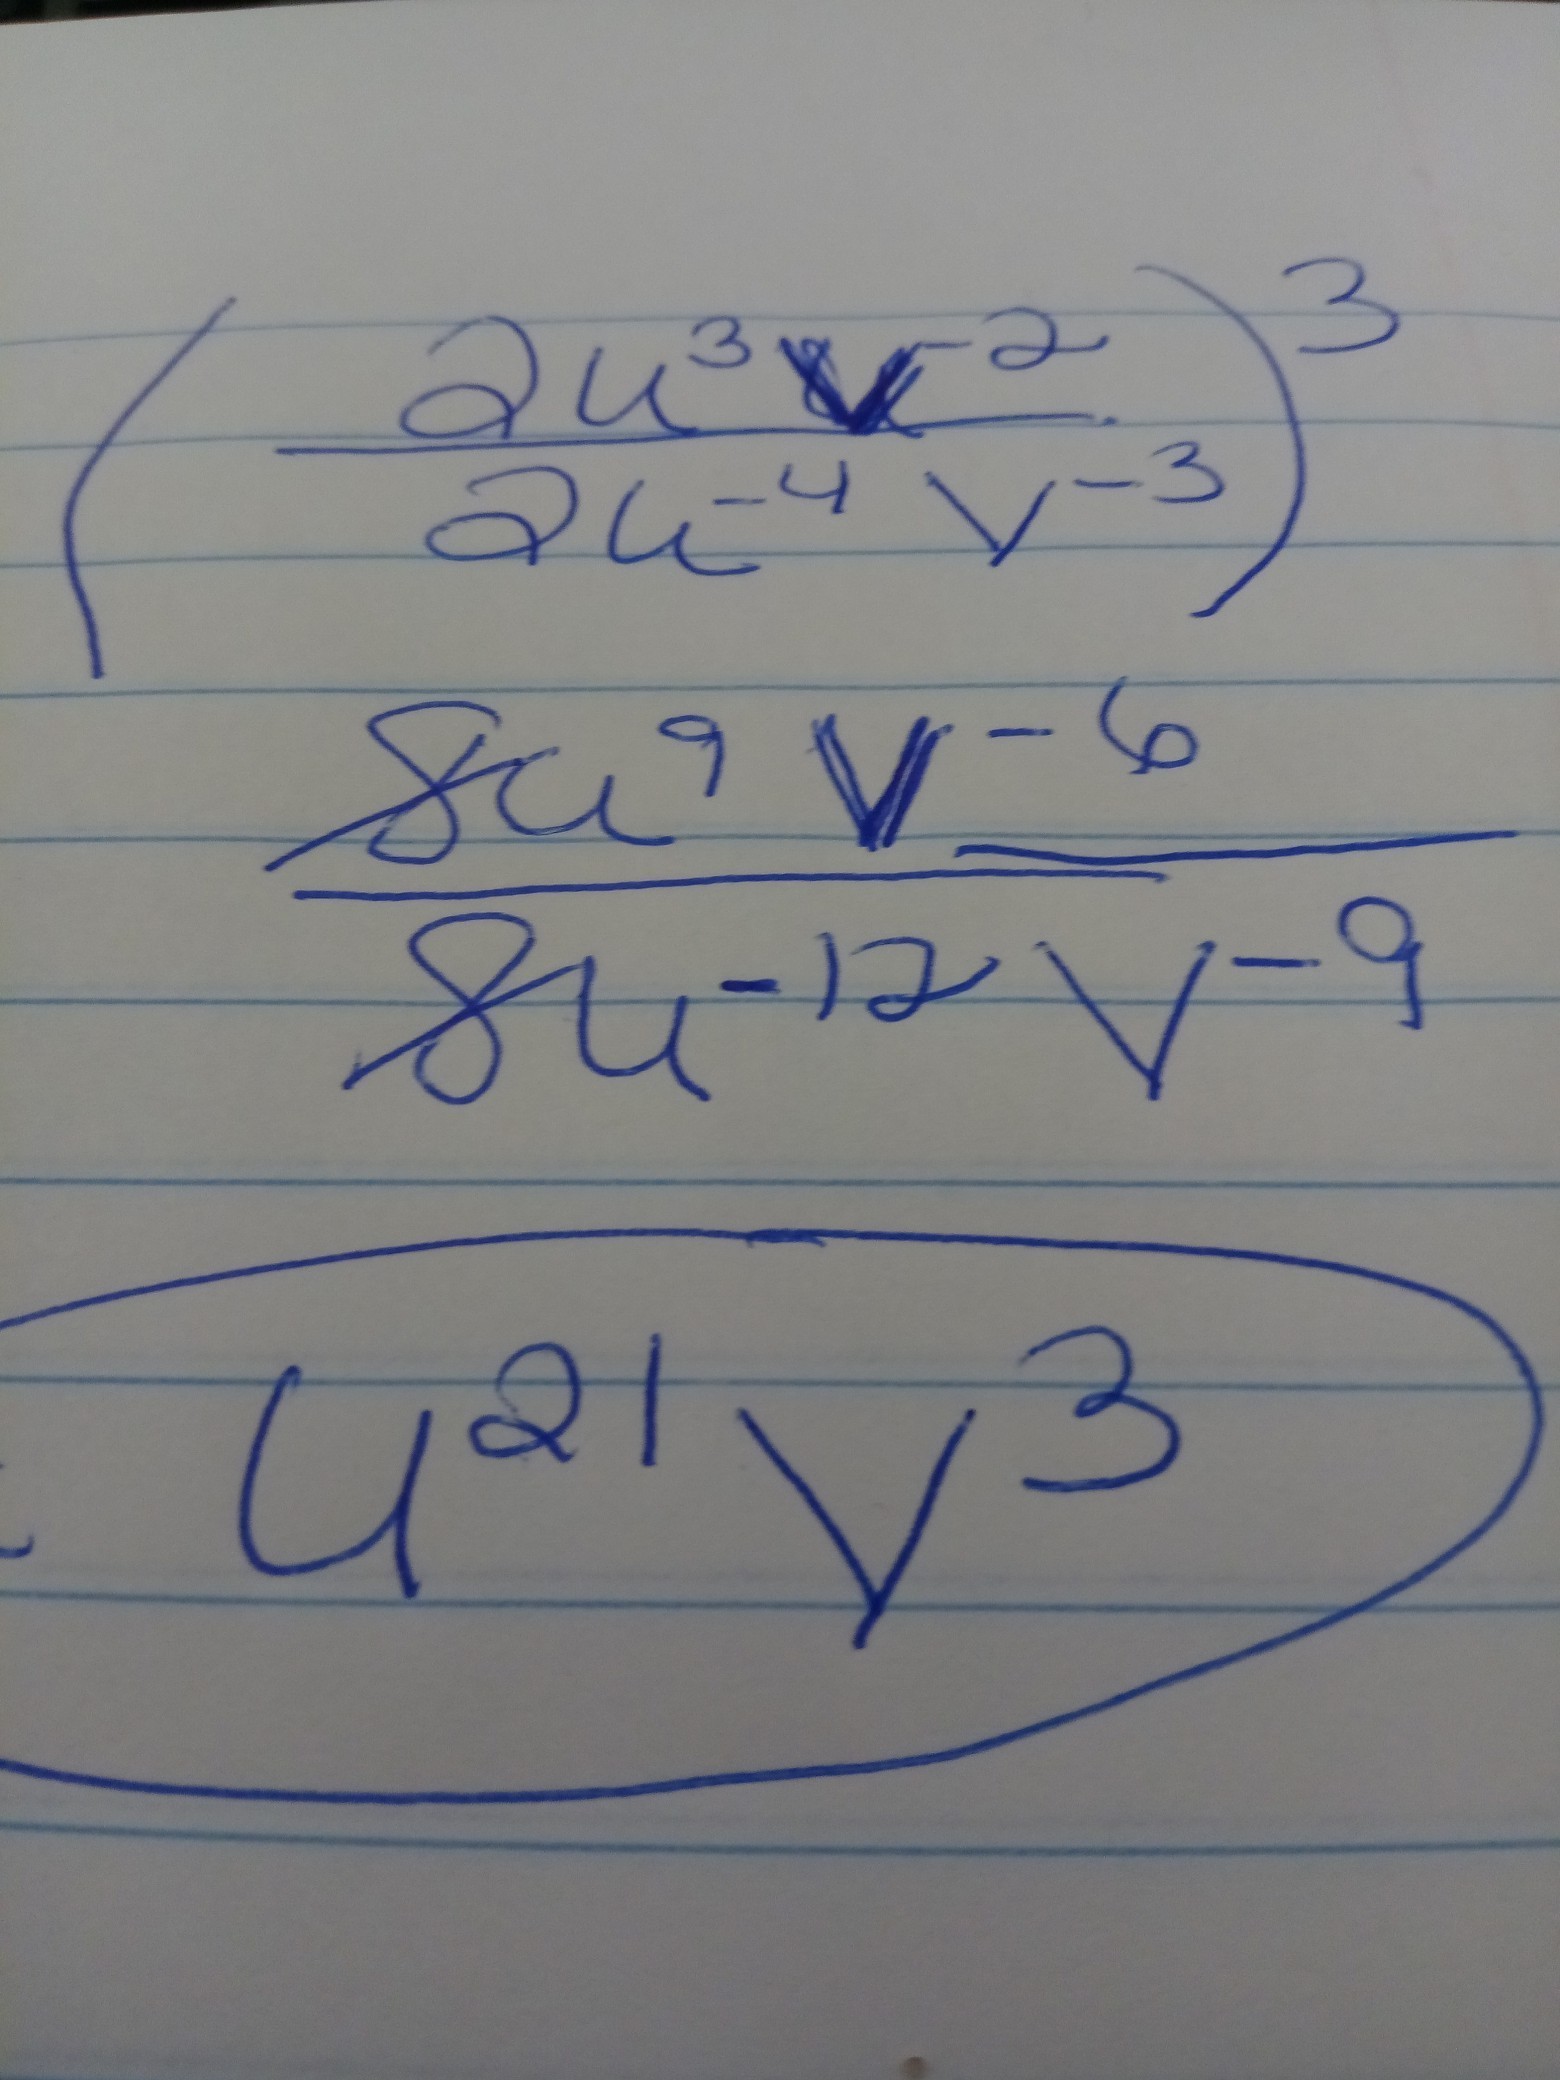 (2u³v⁻²
2u⁻⁴v⁻³)³
8u⁹v⁻⁶
8u⁻¹²v⁻⁹
u²¹v³